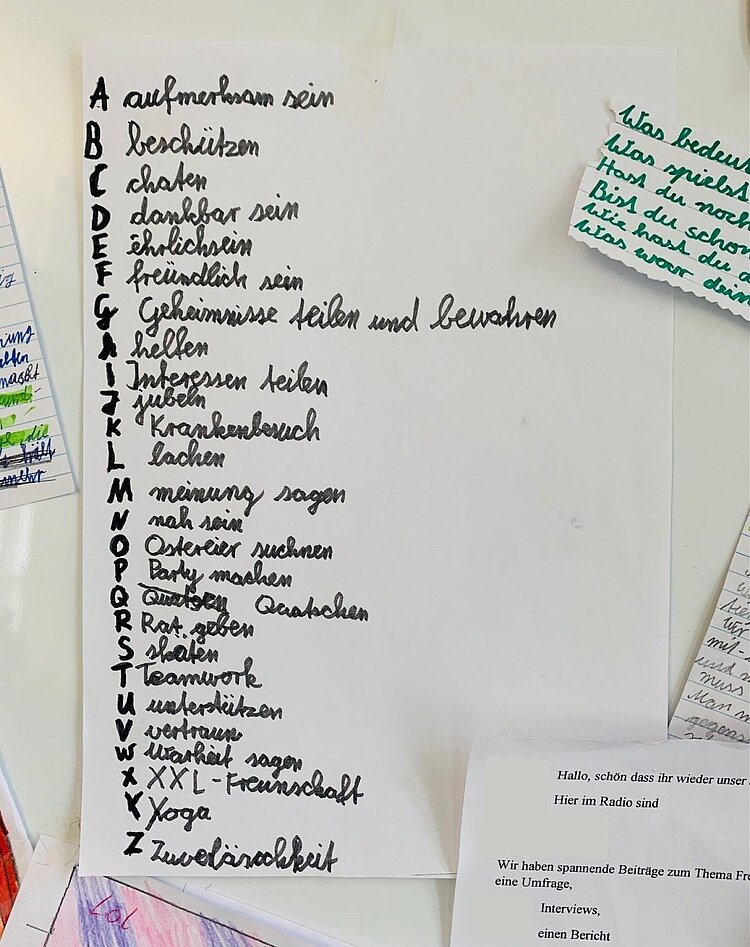 A aufmerksam sein
B beschützen
C chaten
D dankbar sein
E ehrlichsein
F freündlich sein
G Geheimnisse teilen und bewahren
H helfen
I Interessen teilen
J jubeln
K Krankenbesuch
L lachen
M meinung sagen
N nah sein
O Ostereier suchnen
P Party machen
Q Quatschen
R Rat geben
S skäten
T Teamwork
U unterstützen
V vertraun
W Warheit sagen
X XXL-Freunschaft
Y Yoga
Z Zuverlässchkeit
Was bedeut
Was spielst
Hast du noch
Bist du schon
Wie hast du d
Was war dein
mit-
und
muss
Man
Hallo, schön dass ihr wieder unser
Hier im Radio sind
Wir haben spannende Beiträge zum Thema Fre
eine Umfrage,
Interviews,
einen Bericht
LOL